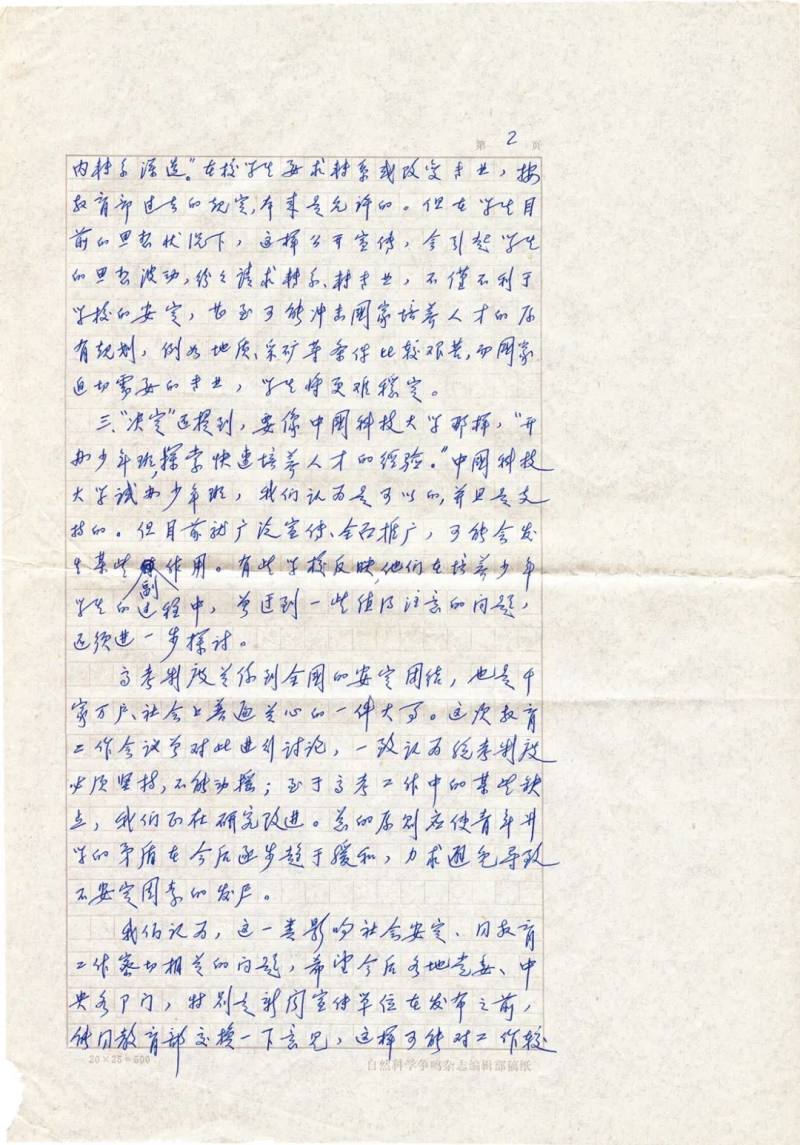 第 2 页
内转系深造。"在校学生要求转系或改变专业，按
教育部过去的规定，本来是允许的。但在学生目
前的思想状况下，这样公开宣传，会引起学生
的思想波动，纷纷请求转系、转专业，不仅不利于
学校的安定，甚至可能冲击国家培养人才的原
有规划，例如地质、采矿等条件比较艰苦，而国家
迫切需要的专业，学生将更难稳定。
三、"决定"还提到，要像中国科技大学那样，"开
办少年班，探索快速培养人才的经验。"中国科技
大学试办少年班，我们认为是可以的，并且是支
持的。但目前就广泛宣传、全面推广，可能会发
生某些副作用。有些学校反映，他们在培养少年
学生的过程中，曾遇到一些值得注意的问题，
还须进一步探讨。
高考制度关系到全国的安定团结，也是千
家万户、社会上普遍关心的一件大事。这次教育
工作会议曾对此进行讨论，一致认为统考制度
必须坚持，不能动摇；至于高考工作中的某些缺
点，我们正在研究改进。总的原则应使青年升
学的矛盾在今后逐步趋于缓和，力求避免导致
不安定因素的发生。
我们认为，这一类影响社会安定、同教育
工作密切相关的问题，希望今后各地党委、中
央各部门，特别是新闻宣传单位在发布之前，
能同教育部交换一下意见，这样可能对工作较
20×25=500
自然科学争鸣杂志编辑部稿纸